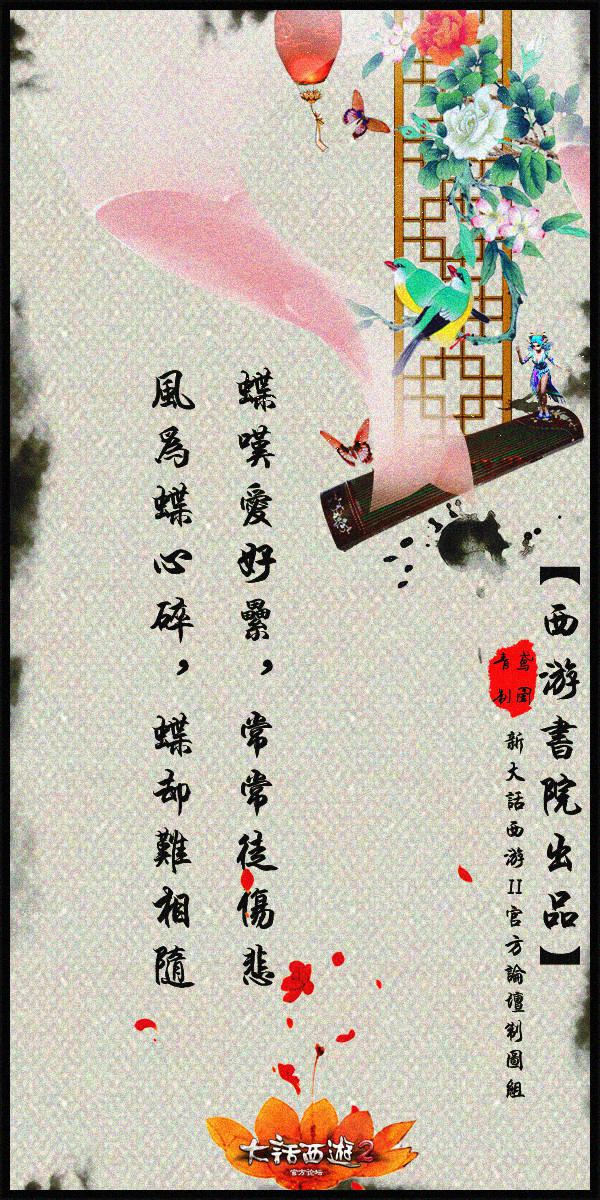 【西游書院出品】
鸢圖
青制
新大話西游II官方論壇制圖組
蝶嘆愛好纍，常常徒傷悲
風為蝶心碎，蝶却難相隨
大話西遊2
官方论坛